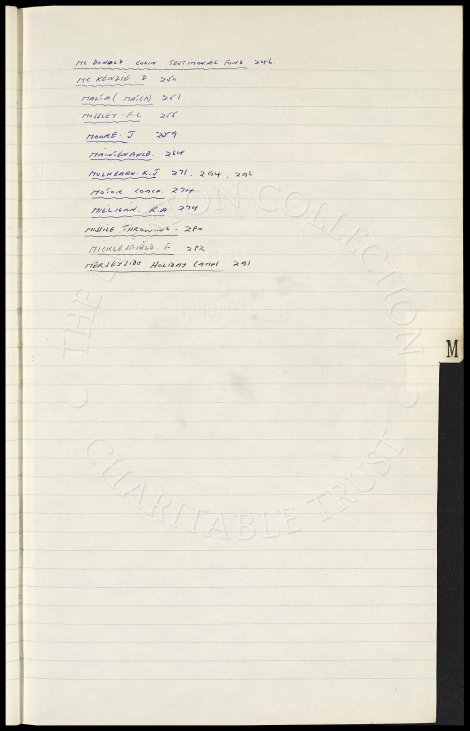 MC DONALD COLIN TESTIMONIAL FUND 246.
MC KENZIE D 250
MALTA (MALCA) 251
MOSELEY. F.C 255
MOORE. J 259
MAINTENANCE. 264
MULHEARN. K.J 271, 294, 296
MOTOR COACH. 274
MILLIGAN. R.A 274
MISSILE THROWING - 280
MICKLESFIELD F 282
MERSEYSIDE HOLIDAY CAMP 291
M
THE EVERTON COLLECTION
CHARITABLE TRUST